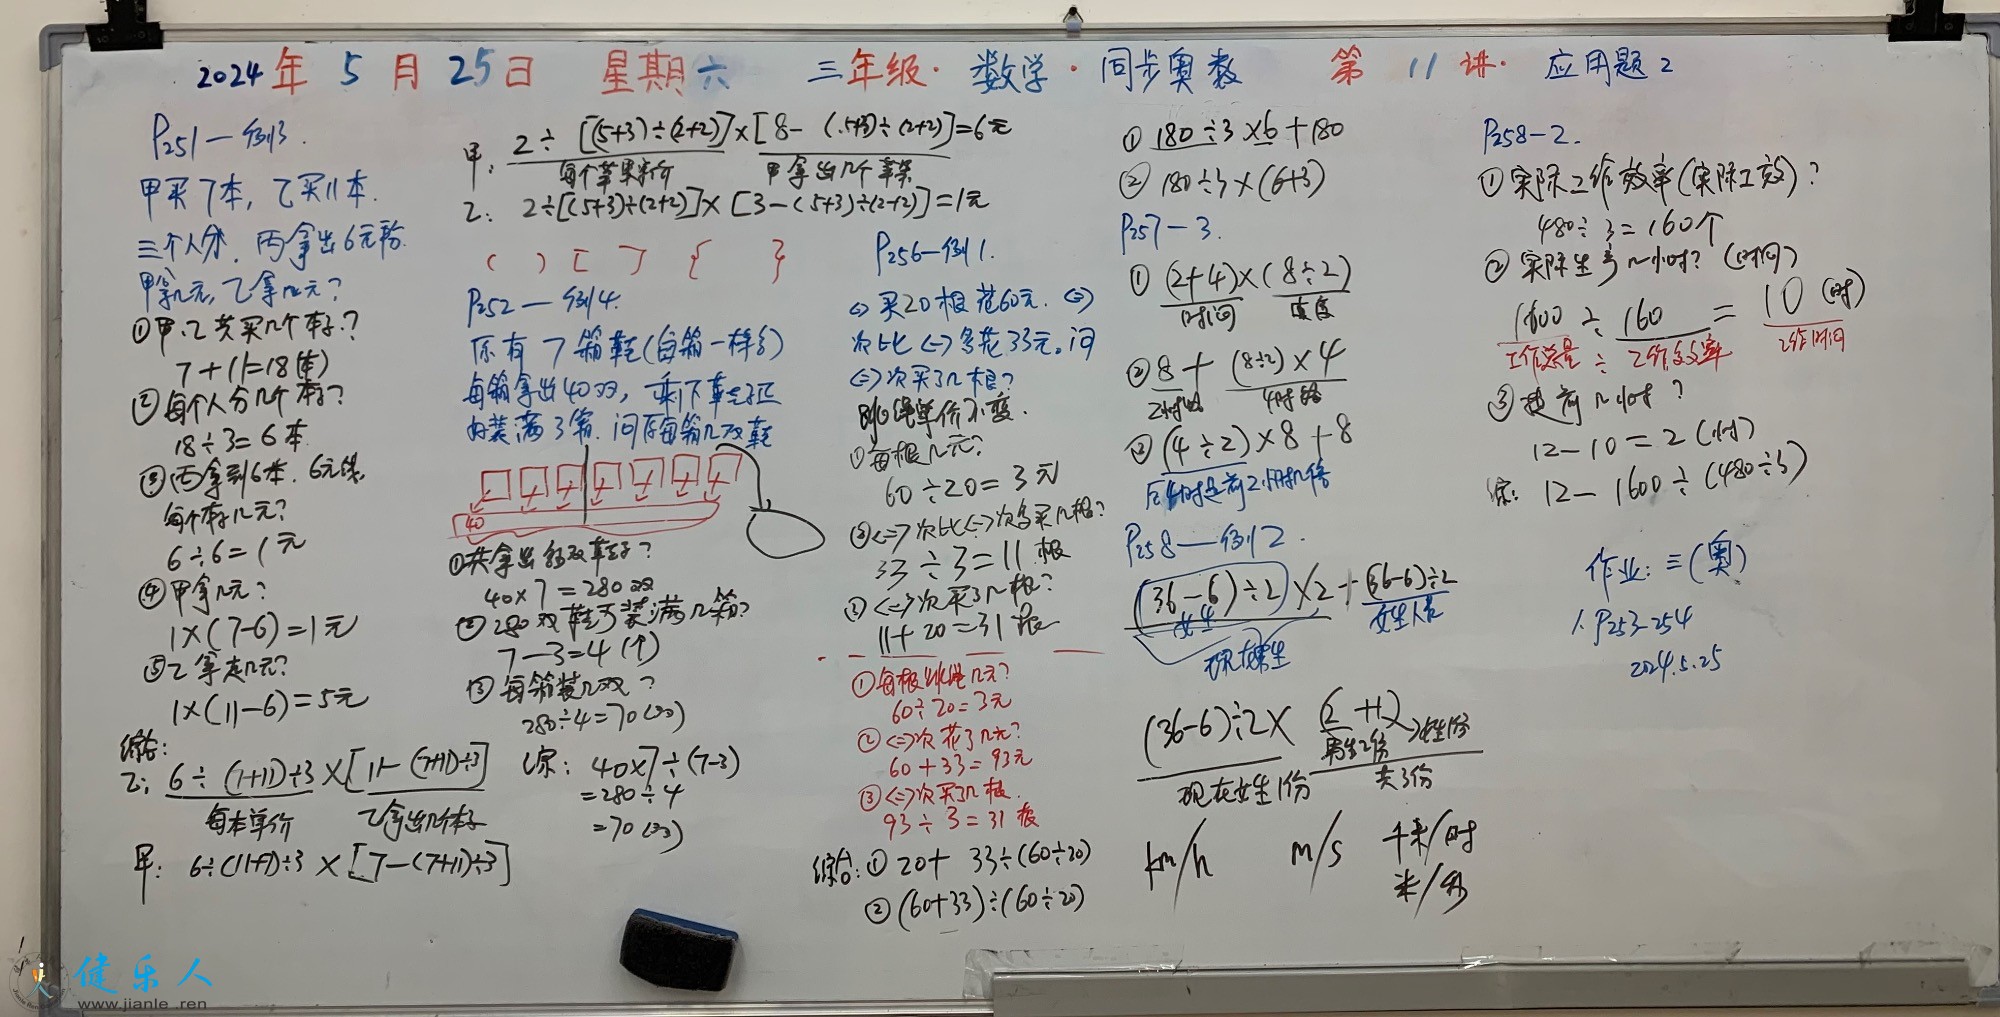 2024年5月25日 星期六 三年级·数学·同步奥数 第11讲·应用题2
P251—例3.
甲买7本，乙买11本.
三个人分.丙拿出6元钱.
甲拿几元,乙拿几元?
①甲.乙共买几个本子?
7+11=18(本)
②每个人分几个本子?
18÷3=6本
③丙拿到6本.6元钱.
每个本子几元?
6÷6=1元
④甲拿几元?
1×(7-6)=1元
⑤乙拿走几元?
1×(11-6)=5元
综合:
乙: 6÷(7+11)÷3×[11-(7+11)÷3]
每本单价 乙拿出几个本子
甲: 6÷(11+7)÷3×[7-(7+11)÷3]
甲: 2÷[(5+3)÷(2+2)]×[8-(5+3)÷(2+2)]=6元
每个苹果单价 甲拿出几个苹果
乙: 2÷[(5+3)÷(2+2)]×[3-(5+3)÷(2+2)]=1元
( ) [ ] { }
P252—例4.
原有7箱鞋(每箱一样多)
每箱拿出40双,乘下鞋子正
好装满3箱.问原每箱几双鞋
40
①共拿出多少双鞋子?
40×7=280双
②280双鞋可装满几箱?
7-3=4(个)
③每箱装几双?
280÷4=70(双)
综: 40×7÷(7-3)
=280÷4
=70(双)
P256—例1.
<一>买20根花60元.<二>
次比<一>多花33元。问
<二>次买了几根?
跳绳单价不变.
①每根几元?
60÷20=3元
②<二>次比<一>次多买几根?
33÷3=11根
③<二>次买了几根?
11+20=31根
①每根跳绳几元?
60÷20=3元
②<二>次花了几元?
60+33=93元
③<二>次买了几根.
93÷3=31根
综合:①20+33÷(60÷20)
②(60+33)÷(60÷20)
①180÷3×6+180
②180÷3×(6+3)
P257-3.
①(2+4)×(8÷2)
时间 速度
②8+(8÷2)×4
2小时路 4时路
③(4÷2)×8+8
后4时是前2小时几倍
P258—例2.
(36-6)÷2×2+(36-6)÷2
女生
现在男生 女生人数
(36-6)÷2×(2+1)
男生2份→女生1份
现在女生1份 共3份
km/h m/s 千米/时
米/秒
P258-2.
①实际工作效率(实际工效)?
480÷3=160个
②实际生产几小时?(时间)
1600÷160=10(时)
工作总量÷工作效率 工作时间
③提前几小时?
12-10=2(小时)
综: 12-1600÷(480÷3)
作业:三(奥)
1.P253-254
2024.5.25
健乐人
www.jianle.ren